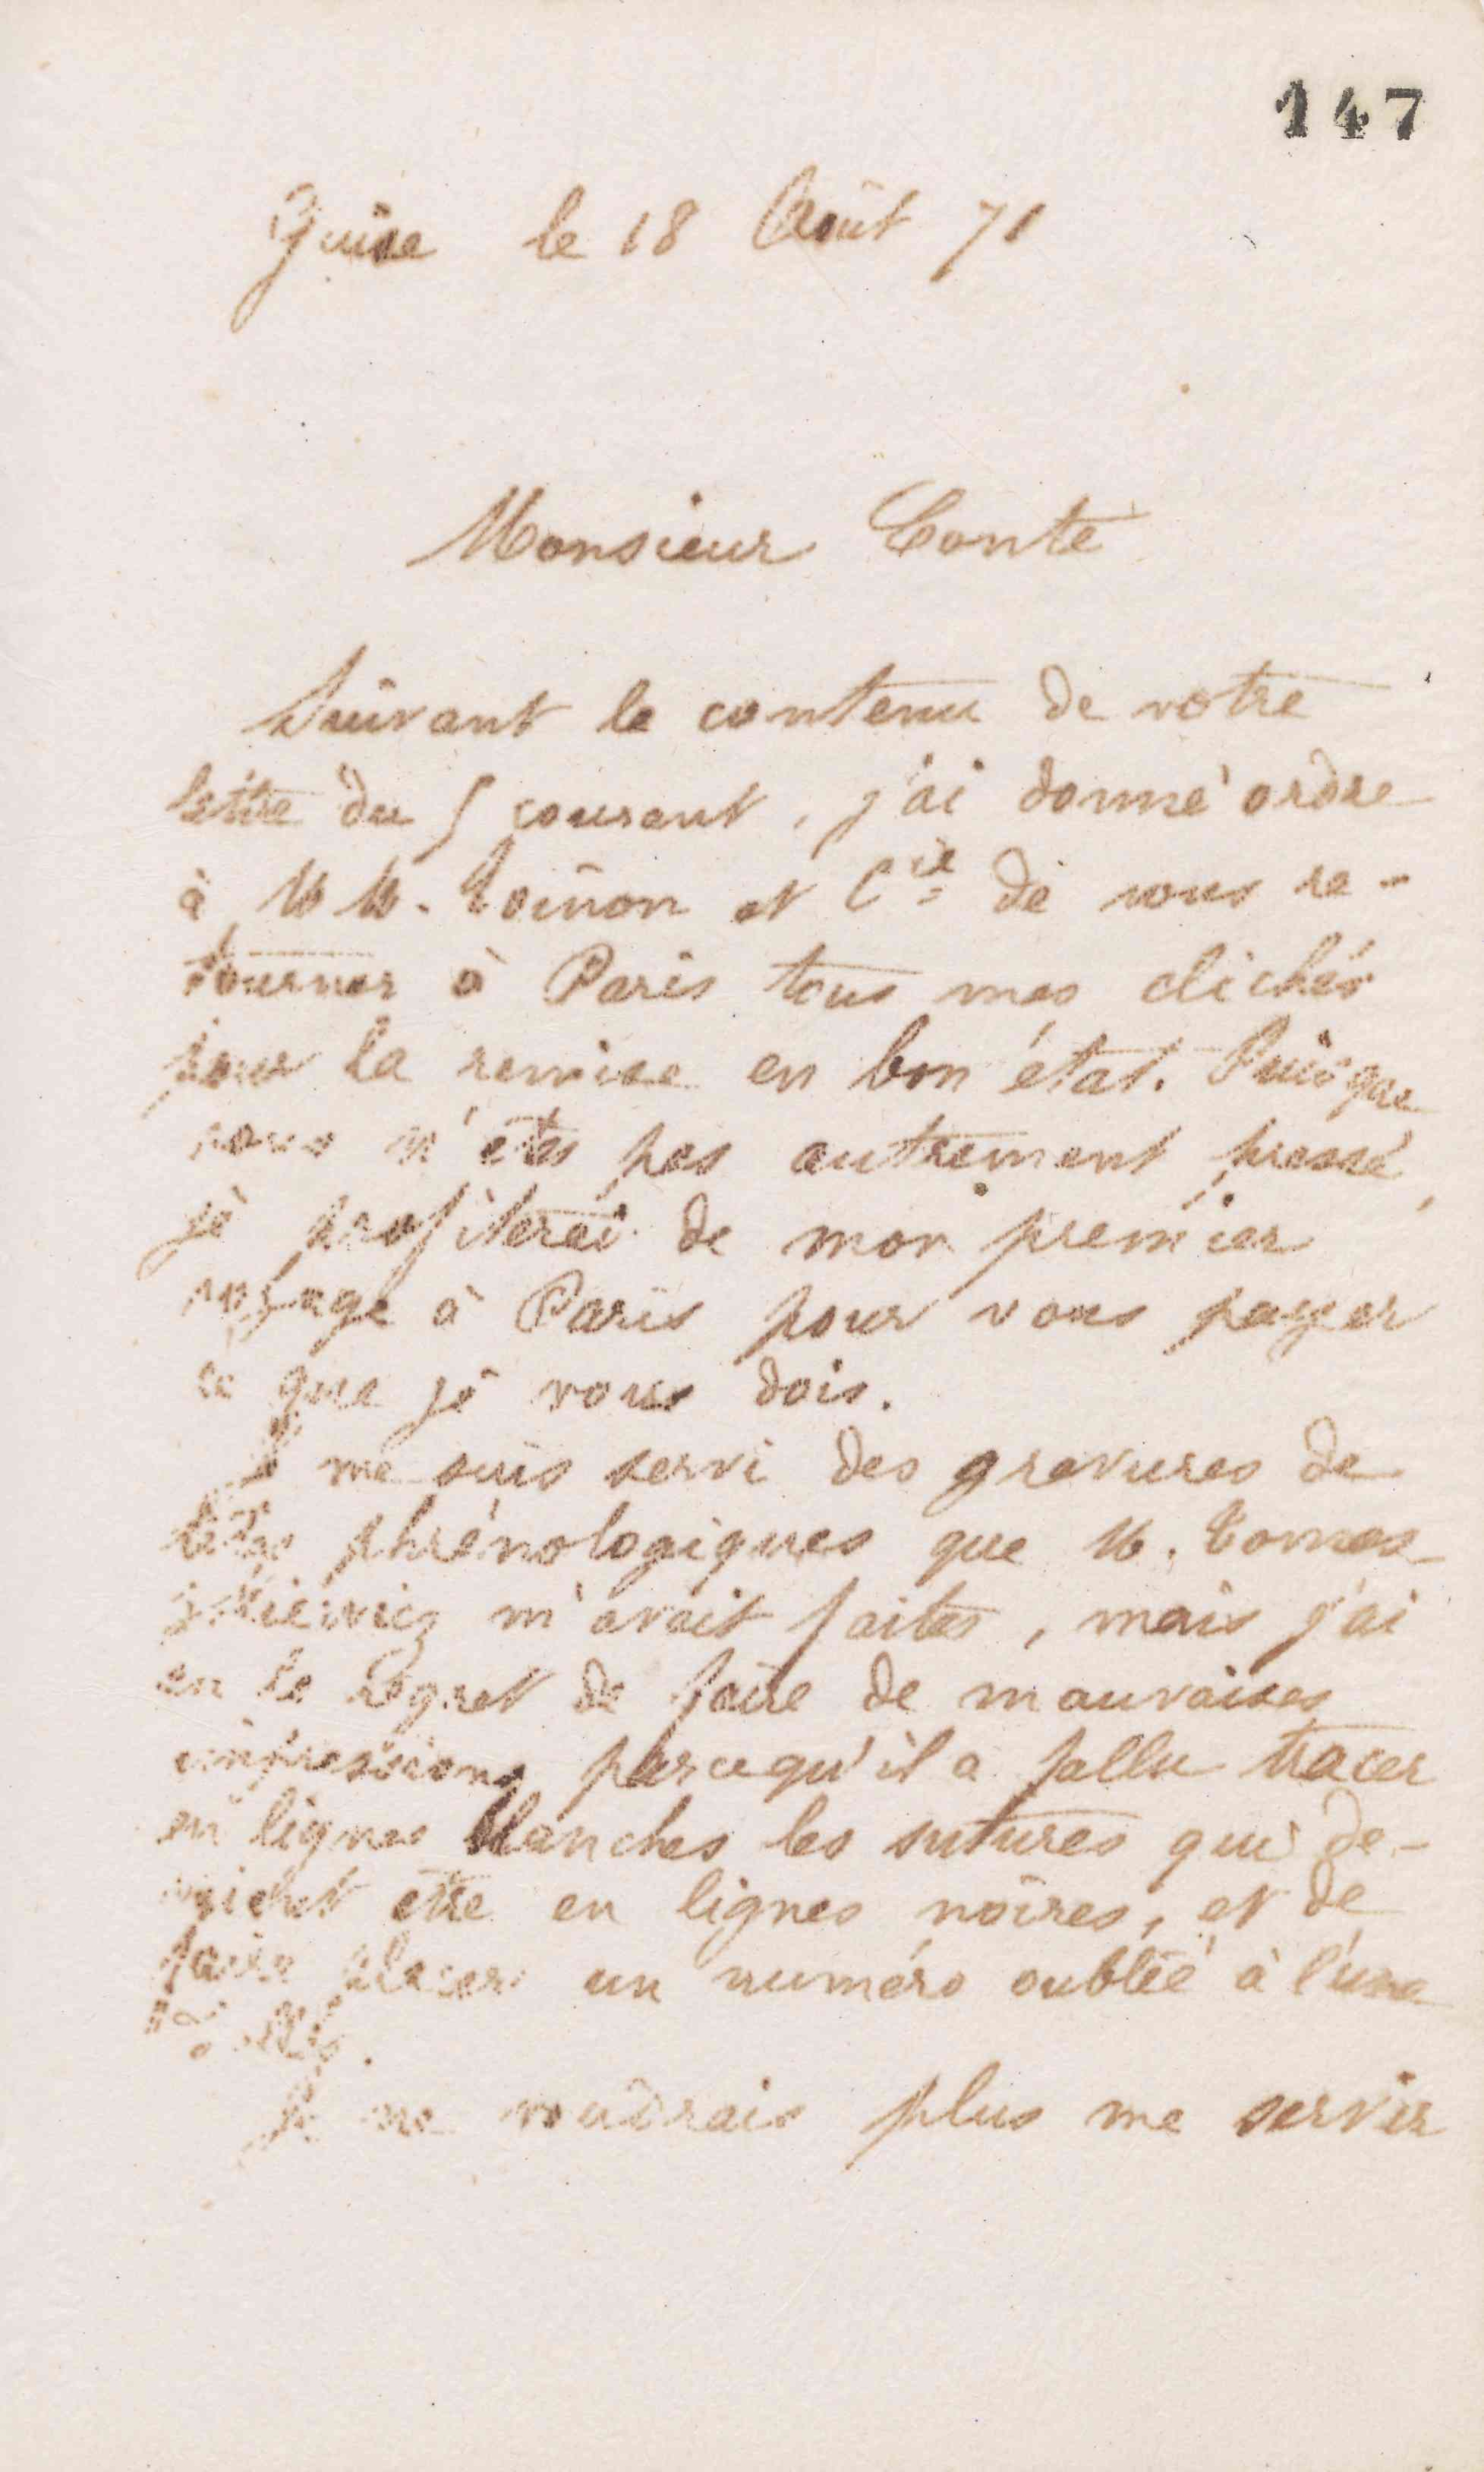 147
Guise le 18 Août 71
Monsieur Conte
Suivant le contenu de votre
lettre du 5 courant, j'ai donné ordre
à MM. Toinon et Cie de vous re-
tourner à Paris tous mes clichés
pour la remise en bon état. Puisque
vous n'êtes pas autrement pressé,
je profiterai de mon premier
voyage à Paris pour vous payer
ce que je vous dois.
Je me suis servi des gravures de
têtes phrénologiques que M. Tomas-
zkiewicz m'avait faites, mais j'ai
eu le regret de faire de mauvaises
impressions parcequ'il a fallu tracer
en lignes blanches les sutures qui de-
vaient être en lignes noires, et de
faire placer un numéro oublié à l'une
d'elles.
Je ne voudrais plus me servir